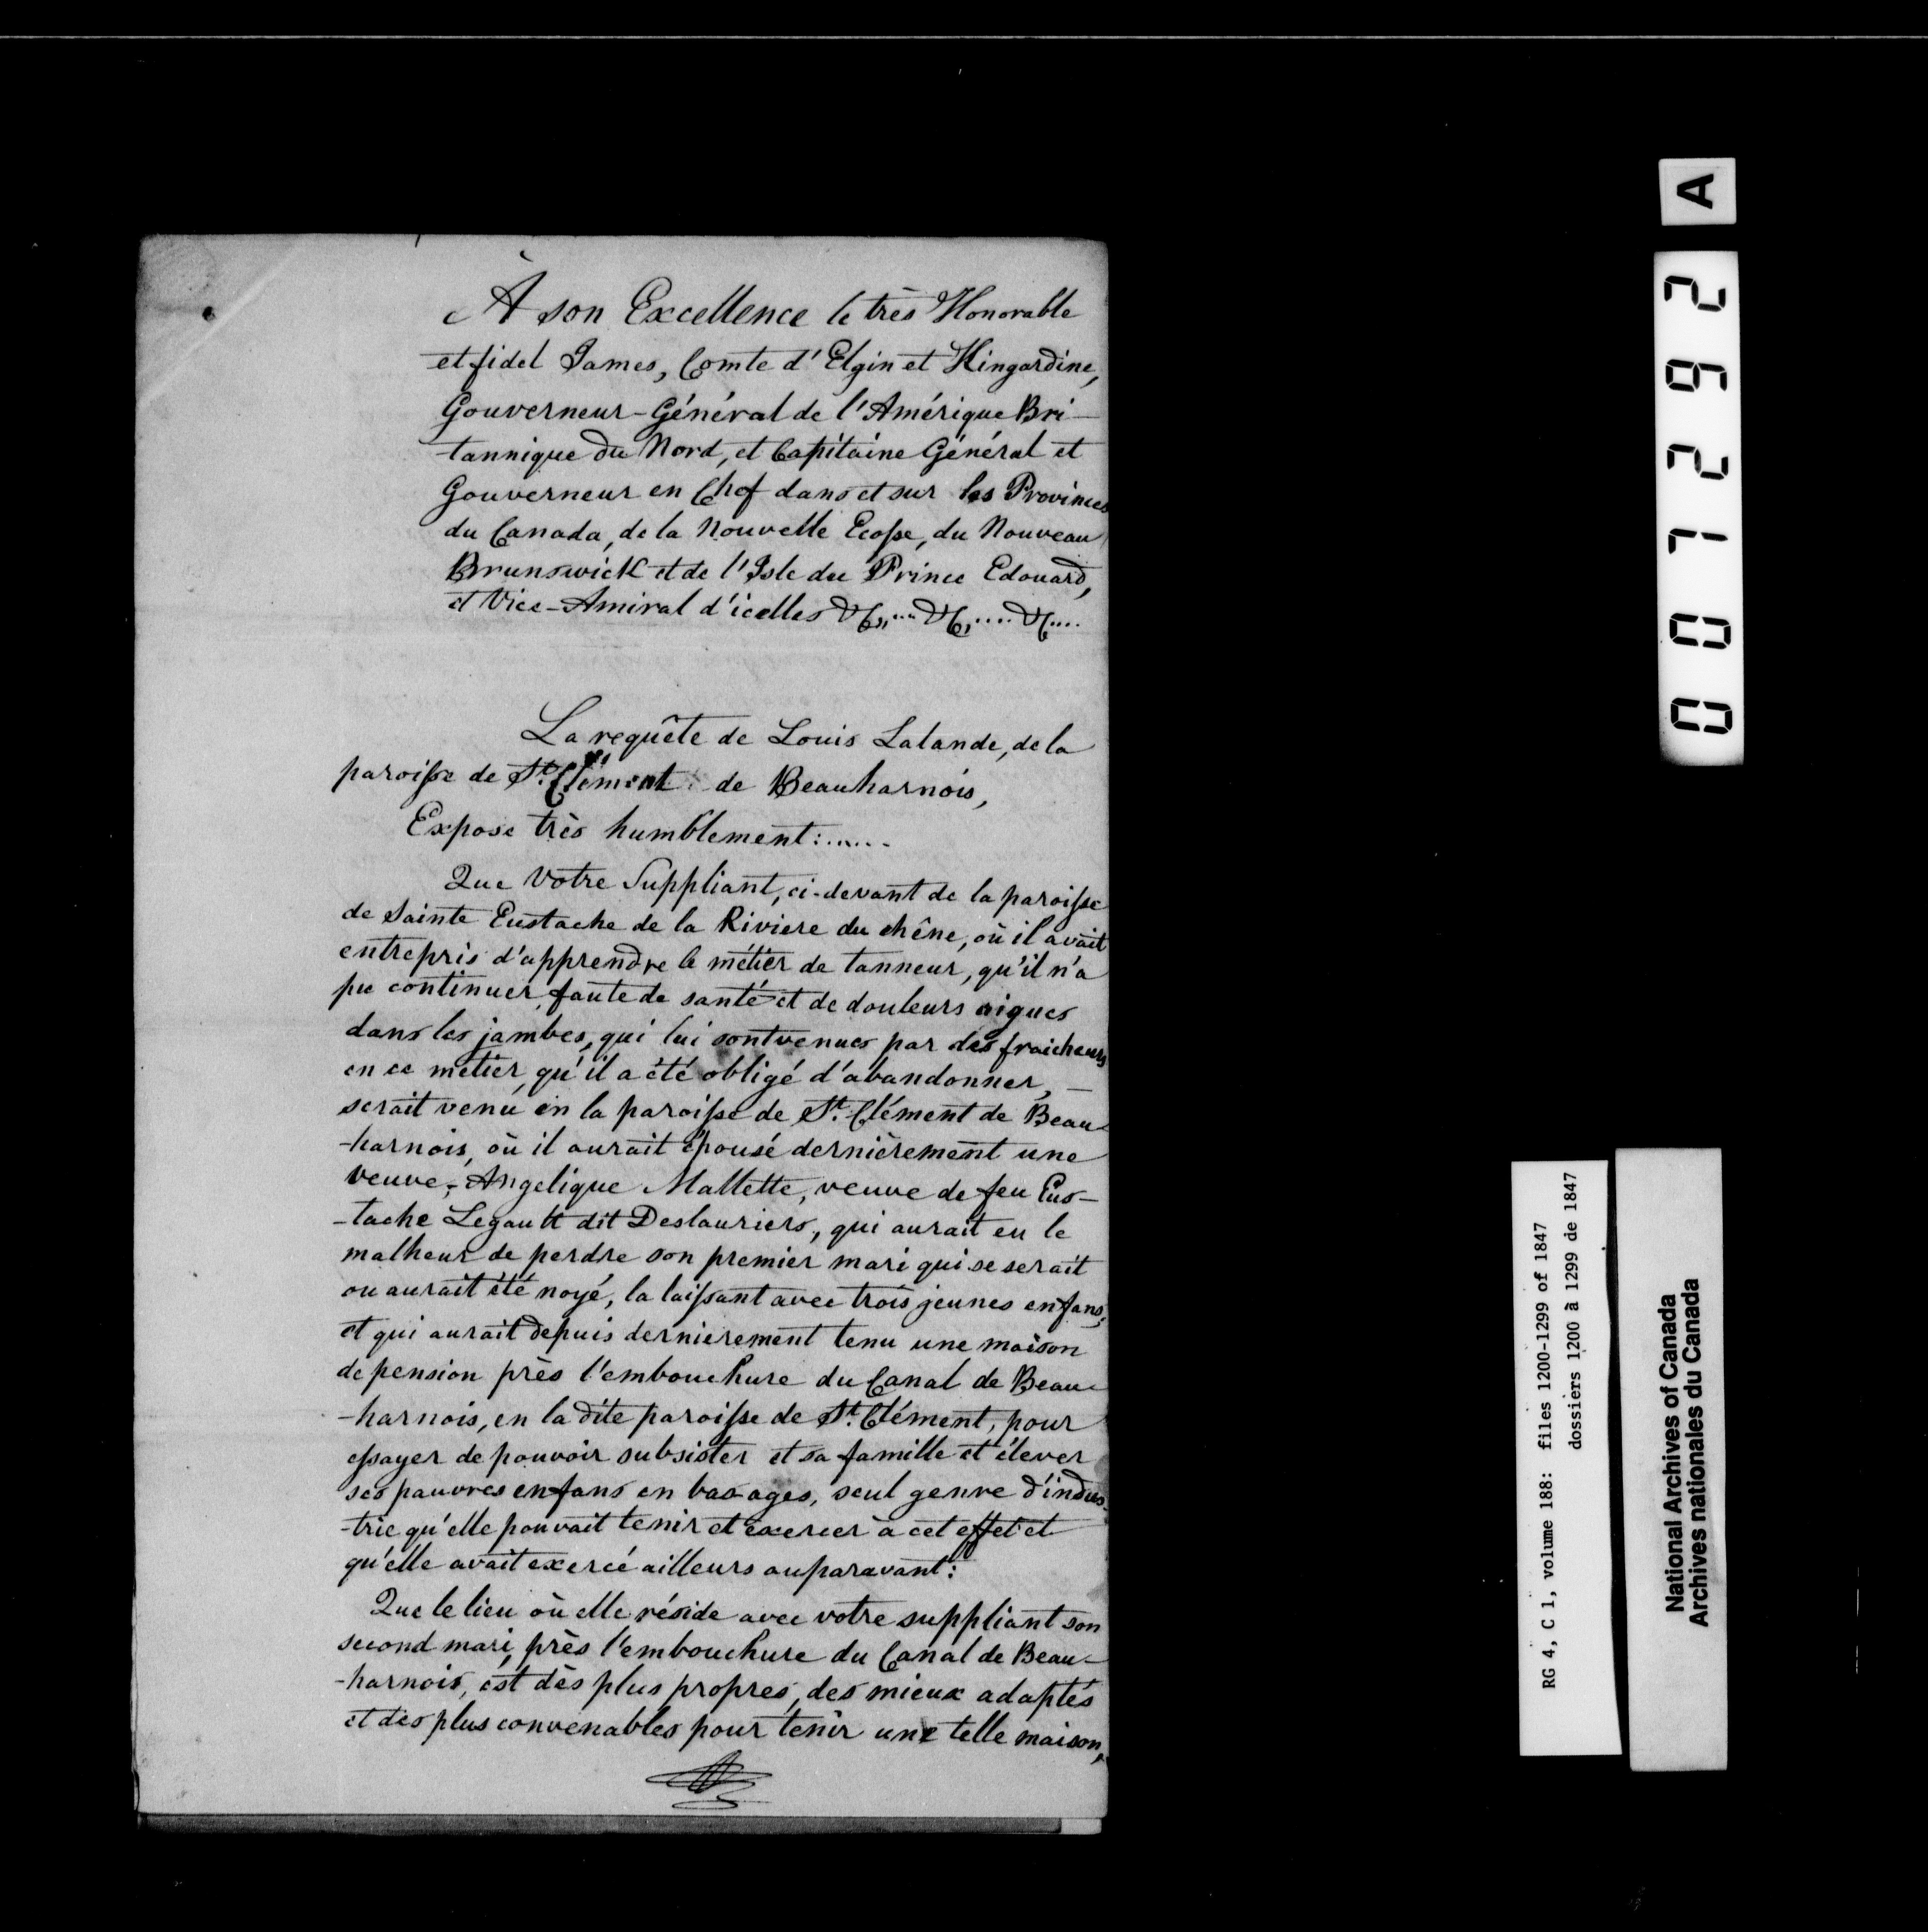 À son Excellence le très Honorable
et fidel James, Comte d'Elgin et Kingardine,
Gouverneur-Général de l'Amérique Bri-
-tannique du Nord, et Capitaine Général et
Gouverneur en Chef dans et sur les Provinces
du Canada, de la Nouvelle Ecosse, du Nouveau
Brunswick et de l'Isle du Prince Edouard,
et Vice-Amiral d'icelles &c,,...&c,....&c....
La requête de Louis Lalande, de la
paroisse de St. Clément de Beauharnois,
Expose très humblement:......
Que Votre Suppliant, ci-devant de la paroisse
de Sainte Eustache de la Riviere du chêne, où il avait
entrepris d'apprendre le métier de tanneur, qu'il n'a
pu continuer, faute de santé et de douleurs aigues
dans les jambes, qui lui sont venues par des fraicheurs
en ce métier, qu'il a été obligé d'abandonner, —
serait venu en la paroisse de St. Clément de Beau-
-harnois, où il aurait épousé dernièrement une
veuve, Angelique Mallette, veuve de feu Eus-
-tache Legault dit Deslauriers, qui aurait eu le
malheur de perdre son premier mari qui se serait
ou aurait été noyé, la laissant avec trois jeunes enfans,
et qui aurait depuis dernierement tenu une maison
de pension près l'embouchure du Canal de Beau-
-harnois, en la dite paroisse de St. Clément, pour
essayer de pouvoir subsister et sa famille et élever
ses pauvres enfans en bas-ages, seul genre d'indus-
-trie qu'elle pouvait tenir et exercer à cet effet et
qu'elle avait exercé ailleurs auparavant:
Que le lieu où elle réside avec votre suppliant son
second mari, près l'embouchure du Canal de Beau-
-harnois, est dès plus propres, des mieux adaptés
et des plus convenables pour tenir une telle maison,
A
007292
RG 4, C 1, volume 188: files 1200-1299 of 1847
dossiers 1200 à 1299 de 1847
National Archives of Canada
Archives nationales du Canada